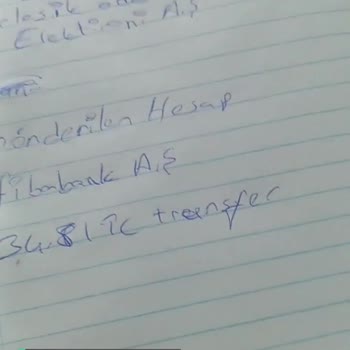 Elektironi A.Ş
Gönderilen Hesap
fibabank A.Ş
34.81 TL transfer